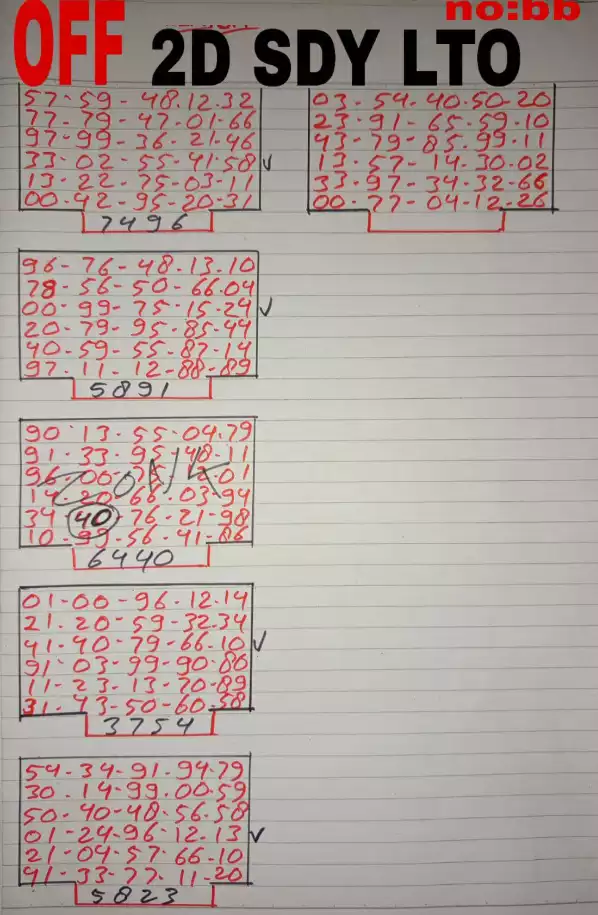 no:bb
OFF 2D SDY LTO
57-59-48.12.32
77-79-47-01-66
97-99-36-21-46
33-02-55-41-58
13-22-75-03-11
00-42-95-20-31
7496
03-54-40-50-20
23-91-65-59-10
43-79-85.99-11
13-57-14-30-02
33-97-34-32-66
00-77-04-12-26
96-76-48.13.10
78-56-50-66.04
00-99-75-15-24
20-79-95-85-44
40-59-55-87-14
97.11-12-88-89
5891
90-13-55-04.79
91-33-95-48-11
14-20-66.03-94
34-40-76-21-98
10-99-56-41-86
6440
01-00-96.12.14
21.20-59-32.34
41-40-79-66.10
91-03-99-90-80
11-23.13-70-89
31-43-50-60-58
3754
54-34-91.94.79
30.14-99.00.59
50-40-48.56.58
01-24-96-12.13
21-04-57-66-10
91-33-77-11-20
5823